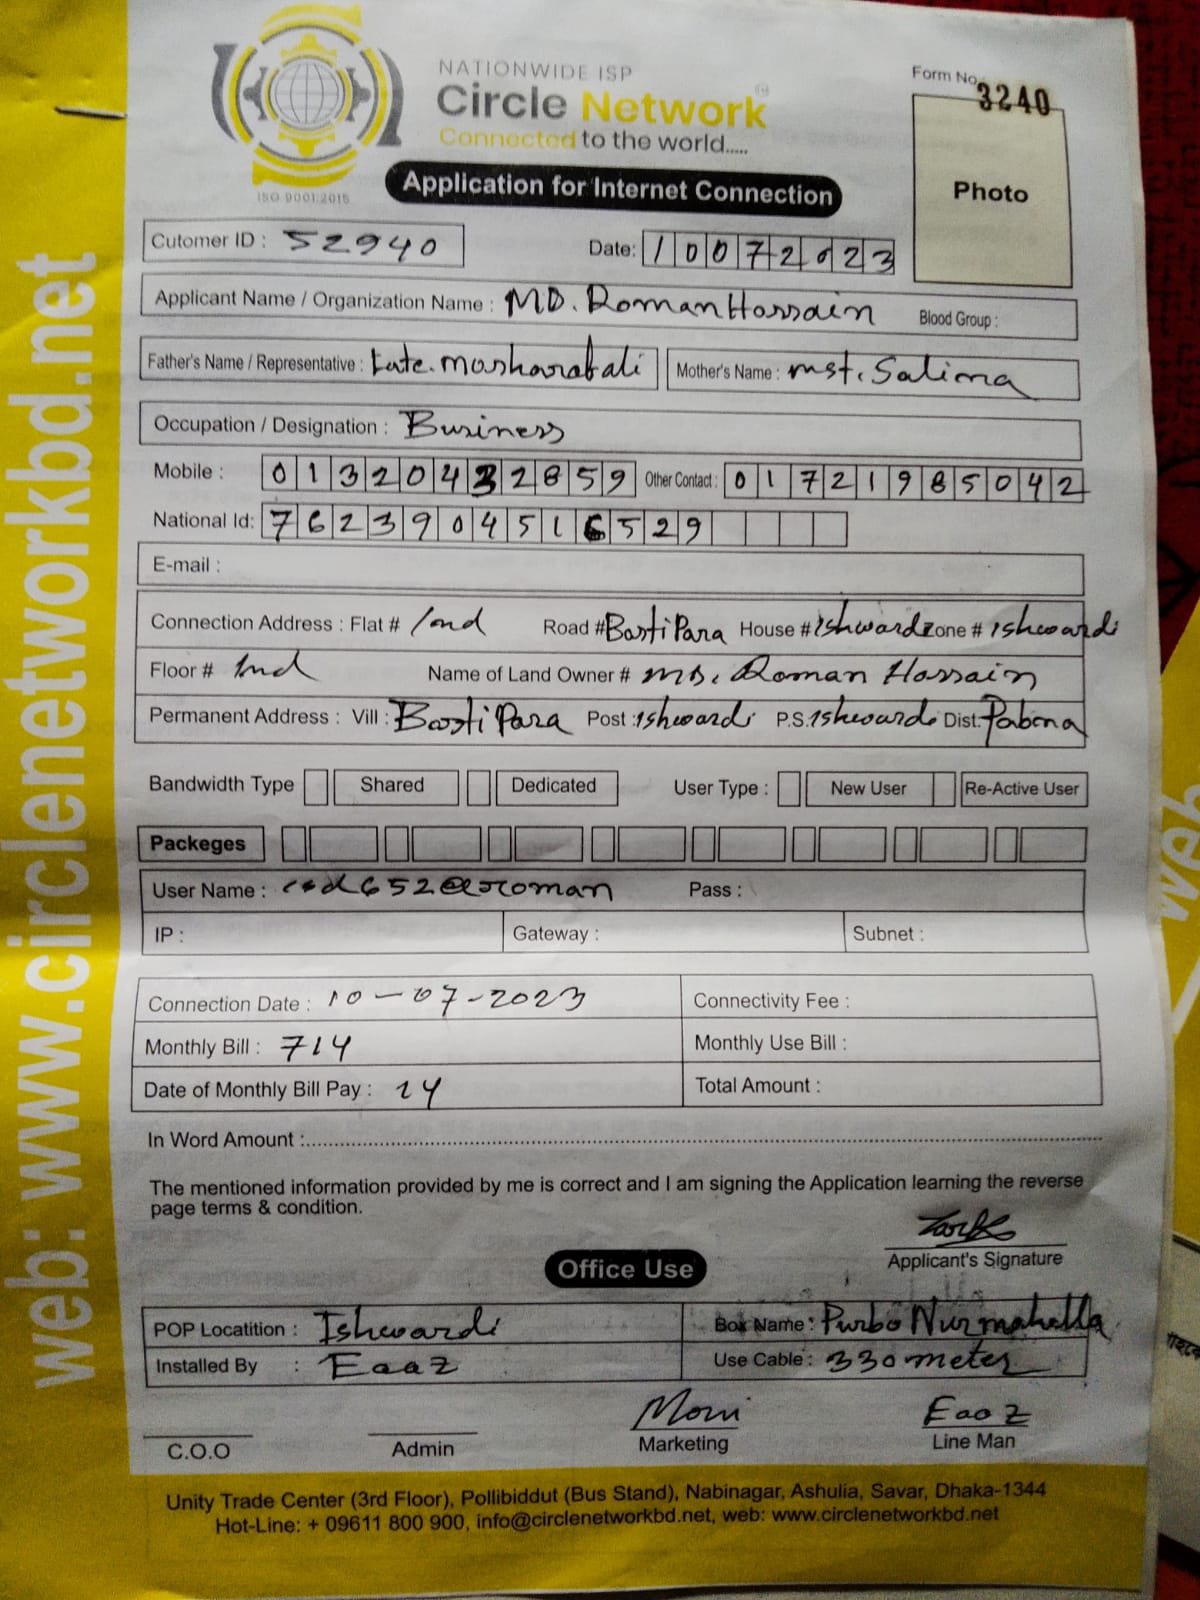 NATIONWIDE ISP
Circle Network
Connected to the world.....
ISO 9001:2015
Form No. 3240
Photo
Application for Internet Connection
Cutomer ID : 52940
Date: 10072023
Applicant Name / Organization Name : MD. Roman Hossain Blood Group :
Father's Name / Representative : Late. Mosharaf ali Mother's Name : mst. Salima
Occupation / Designation : Business
Mobile : 01320432859 Other Contact : 01721985042
National Id: 7623904516529
E-mail :
Connection Address : Flat # 1nd Road # Basti Para House # Ishwardi Zone # Ishwardi
Floor # 1nd Name of Land Owner # MD. Roman Hossain
Permanent Address : Vill : Basti Para Post : Ishwardi P.S. Ishwardi Dist: Pabna
Bandwidth Type Shared Dedicated User Type : New User Re-Active User
Packeges
User Name : Pass :
IP : Gateway : Subnet :
Connection Date : 10-07-2023 Connectivity Fee :
Monthly Bill : 714 Monthly Use Bill :
Date of Monthly Bill Pay : 14 Total Amount :
In Word Amount :
The mentioned information provided by me is correct and I am signing the Application learning the reverse
page terms & condition.
Applicant's Signature
Office Use
POP Locatition : Ishwardi Box Name : Purbo Nurmahalla
Installed By : Eaaz Use Cable : 330 meter
Moni Eaaz
C.O.O Admin Marketing Line Man
Unity Trade Center (3rd Floor), Pollibiddut (Bus Stand), Nabinagar, Ashulia, Savar, Dhaka-1344
Hot-Line: + 09611 800 900, info@circlenetworkbd.net, web: www.circlenetworkbd.net
web: www.circlenetworkbd.net
web